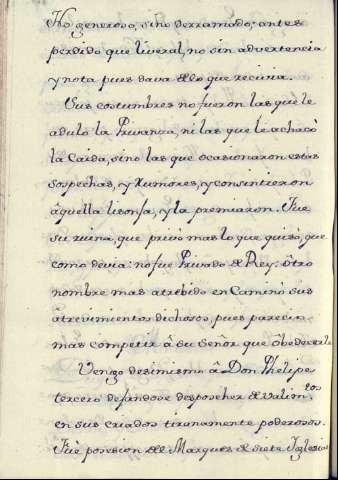 No generoso, sino derramado; antes
perdido que liveral, no sin advertencia
y nota pues dava de lo que recivia.
Sus costumbres no fueron las que le
adulo la Privanza, ni las que le achacò
la Caida, sino las que ocasionaron estas
sospechas, y Rumores, y consintieron
âquella lisonja, y la premiaron. Fue
su ruina, que privò mas lo que quiso, que
como devia: no fue Privado de Rey: ôtro
nombre mas atrebido encaminò sus
âtrevimientos dichosos, pues parecia
mas competir â su Señor que ôbedecerle
Venigo desimismo â Don Phelipe
tercero dejandose desposeher de valim.tos
en sus criados tiranamente poderosos.
Fuè posesion del Marques de siete Iglesias